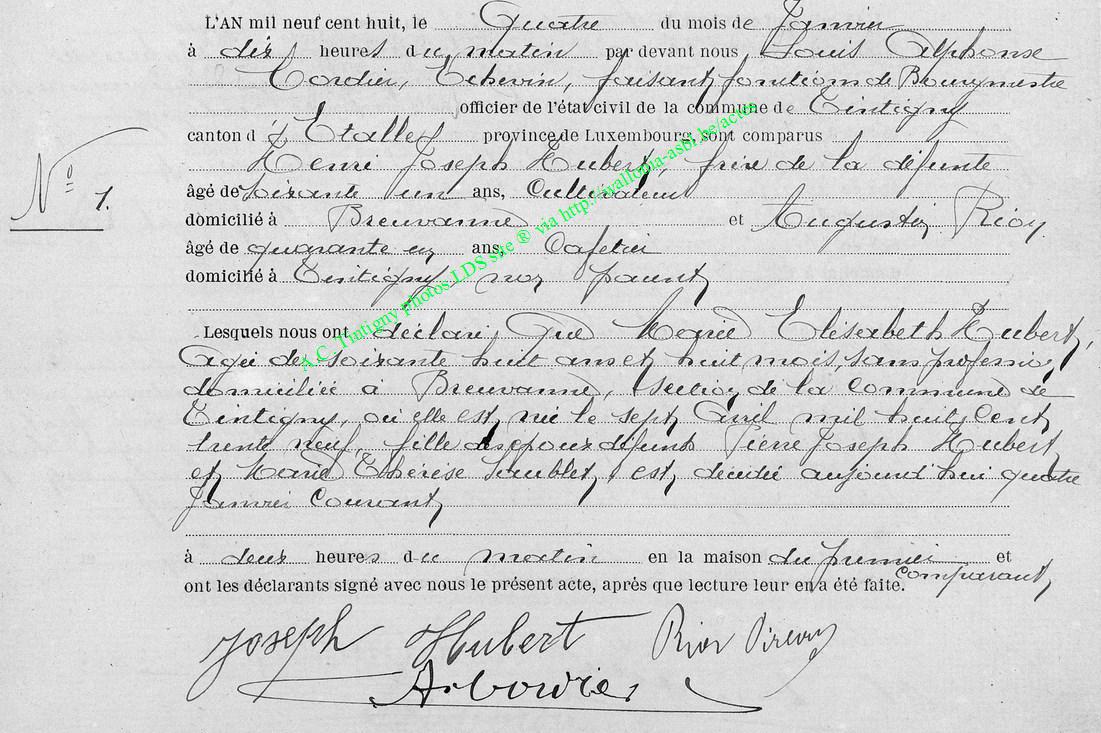 L'AN mil neuf cent huit, le Quatre du mois de Janvier
à dix heures du matin par devant nous Louis Alphonse
Cordier, Echevin, faisant fonctions de Bourgmestre
officier de l'état civil de la commune de Tintigny
canton d'Etalle province de Luxembourg, sont comparus
Henri Joseph Hubert, frère de la défunte
N° 1.
âgé de soixante un ans, Cultivateur
domicilié à Breuvanne et Augustin
âgé de quarante un ans, Cafetier
domicilié à Tintigny, non parent
Lesquels nous ont déclaré Que Marie Elisabeth Hubert,
Agée de soixante huit ans et huit mois, sans profession,
domiciliée à Breuvanne, section de la commune de
Tintigny, où elle est née le sept Avril mil huit cent
trente neuf, fille des époux défunts Pierre Joseph Hubert
et Marie Thérèse est décédée aujourd'hui quatre
Janvier Courant
à deux heures du matin en la maison du premier comparant et
ont les déclarants signé avec nous le présent acte, après que lecture leur en a été faite.
Joseph Hubert
A.C. Tintigny photos LDS site ® via http://wallonia-asbl.be/actes